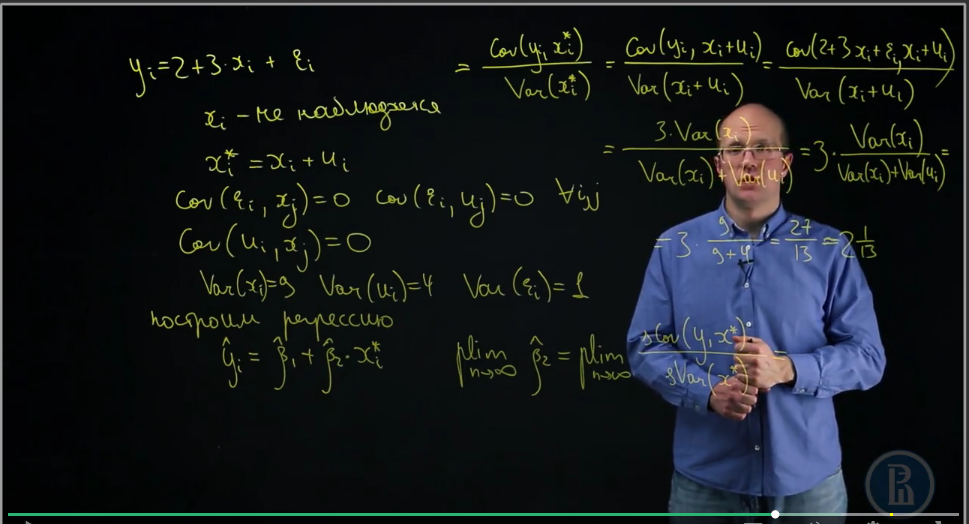 yᵢ = 2 + 3·xᵢ + εᵢ
xᵢ – не наблюдается
xᵢ* = xᵢ + uᵢ
Cov(εᵢ, xⱼ) = 0 Cov(εᵢ, uⱼ) = 0 ∀i,j
Cov(uᵢ, xⱼ) = 0
Var(xᵢ) = 9 Var(uᵢ) = 4 Var(εᵢ) = 1
построим регрессию
ŷᵢ = β̂₁ + β̂₂·xᵢ* plim n→∞ β̂₂ = plim n→∞ sCov(y, x*) / sVar(x*)
= Cov(yᵢ, xᵢ*) / Var(xᵢ*) = Cov(yᵢ, xᵢ+uᵢ) / Var(xᵢ+uᵢ) = Cov(2+3xᵢ+εᵢ, xᵢ+uᵢ) / Var(xᵢ+uᵢ)
= 3·Var(xᵢ) / Var(xᵢ)+Var(uᵢ) = 3· Var(xᵢ) / Var(xᵢ)+Var(uᵢ) =
= 3· 9 / 9+4 = 27/13 = 2 1/13